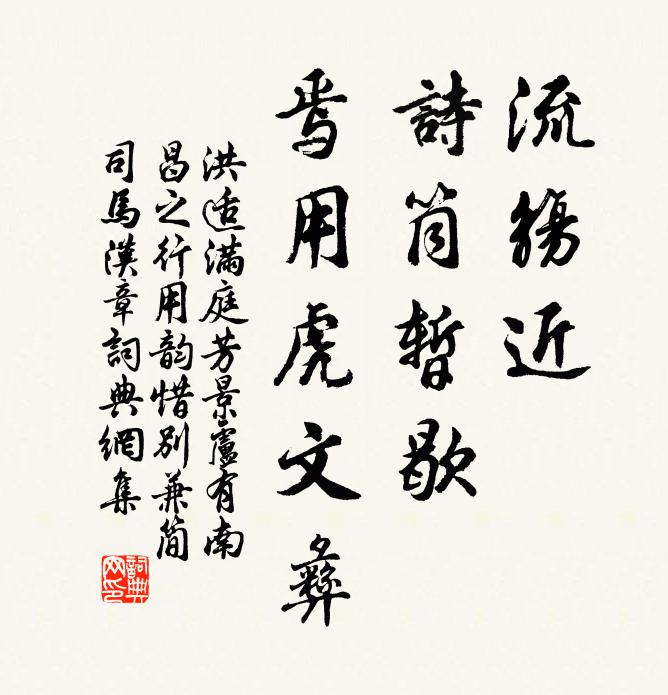 流觴近
詩筒暫歇
焉用虎文彝
洪适滿庭芳景盧有南
昌之行用韵惜別兼簡
司馬漢章詞典網集
詞典網印